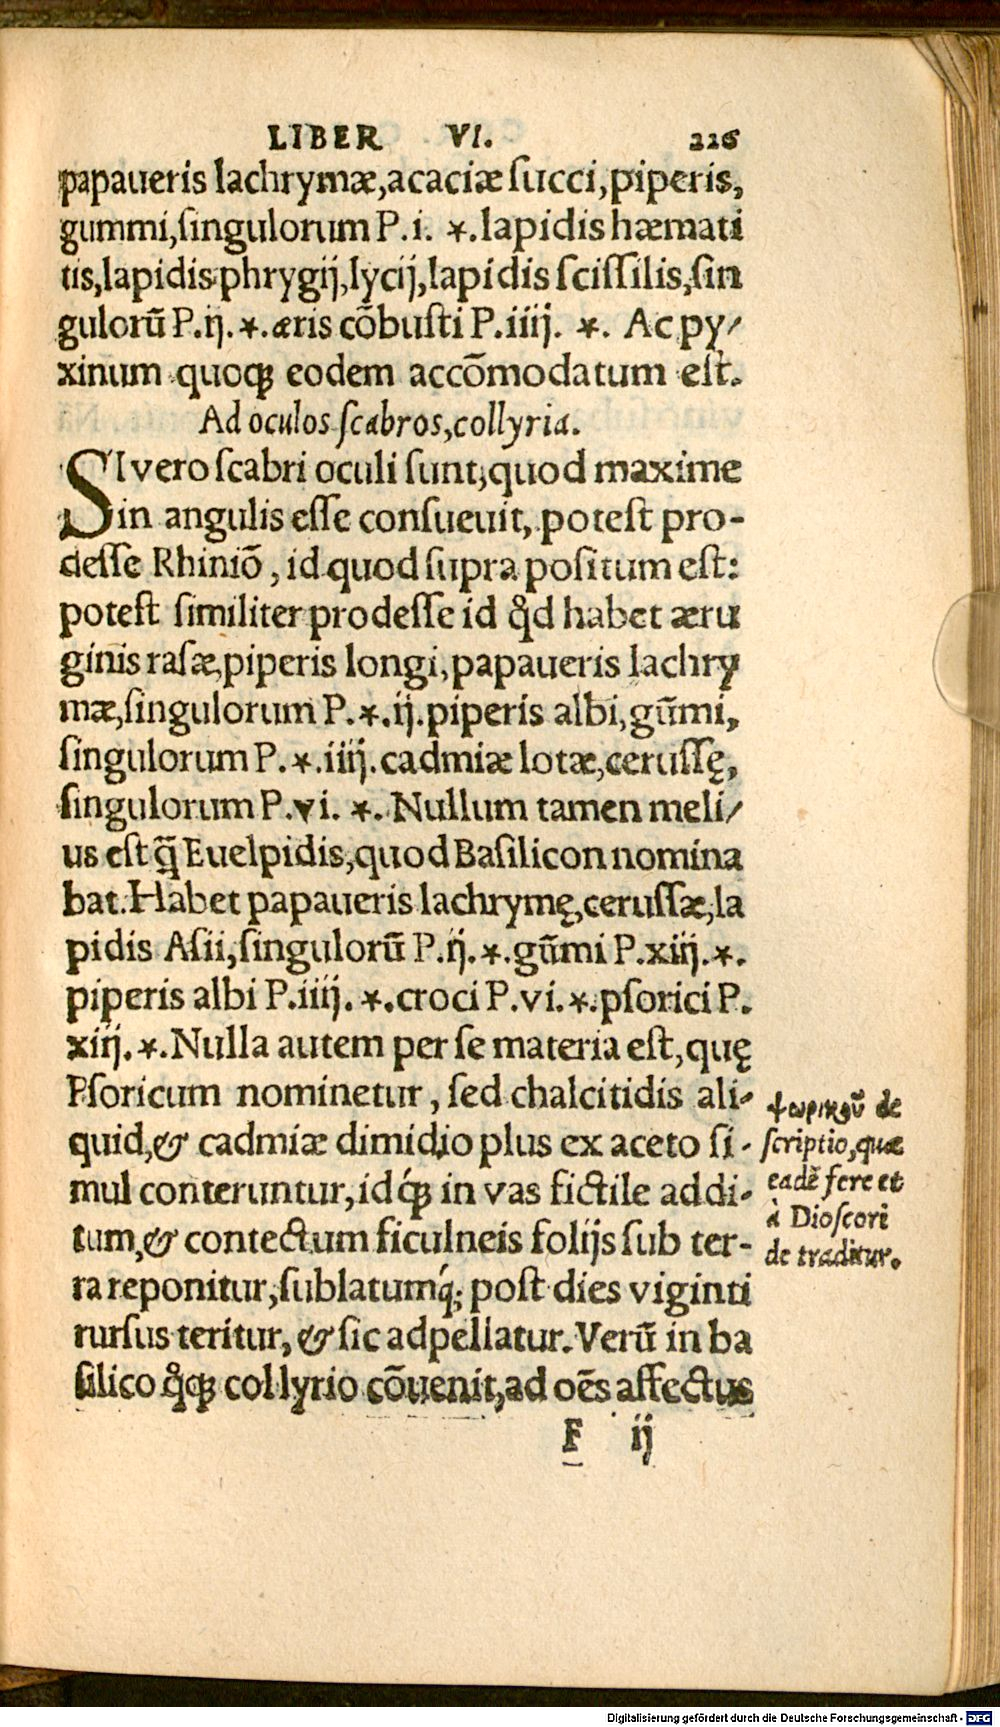 LIBER VI. 226
papaueris lachrymæ,acaciæ ſucci,piperis,
gummi,ſingulorum P.i. *.lapidis hæmati
tis,lapidis phrygij,lycij,lapidis ſciſſilis,ſin
gulorũ P.ij.*.æris cõbuſti P.iiij. *. Ac py/
xinum quoqꝫ eodem accõmodatum eſt.
Ad oculos ſcabros,collyria.
SI vero ſcabri oculi ſunt,quod maxime
in angulis eſſe conſueuit, poteſt pro-
deſſe Rhiniõ, id quod ſupra poſitum eſt:
poteſt ſimiliter prodeſſe id qd̉ habet æru
ginis raſæ,piperis longi,papaueris lachry
mæ,ſingulorum P.*.ij.piperis albi,gũmi,
ſingulorum P.*.iiij.cadmiæ lotæ,ceruſſę,
ſingulorum P.vi. *. Nullum tamen meli/
us eſt q̃ Euelpidis,quod Baſilicon nomina
bat.Habet papaueris lachrymę,ceruſſæ,la
pidis Aſii,ſingulorũ P.ij.*.gũmi P.xiij.*.
piperis albi P.iiij. *.croci P.vi.*.pſorici P.
xiij.*.Nulla autem per ſe materia eſt,quę
Pſoricum nominetur, ſed chalcitidis ali-
quid,& cadmiæ dimidio plus ex aceto ſi-
mul conteruntur,idq́ꝫ in vas fictile addi-
tum,& contectum ficulneis folijs ſub ter-
ra reponitur,ſublatumq́; poſt dies viginti
rurſus teritur,& ſic adpellatur.Verũ in ba
ſilico qͦqꝫ collyrio cõuenit,ad oẽs affectus
F ij
ψωρικοῦ de
ſcriptio,quæ
eadẽ fere et
à Dioſcori
de traditur.
Digitalisierung gefördert durch die Deutsche Forschungsgemeinschaft - DFG